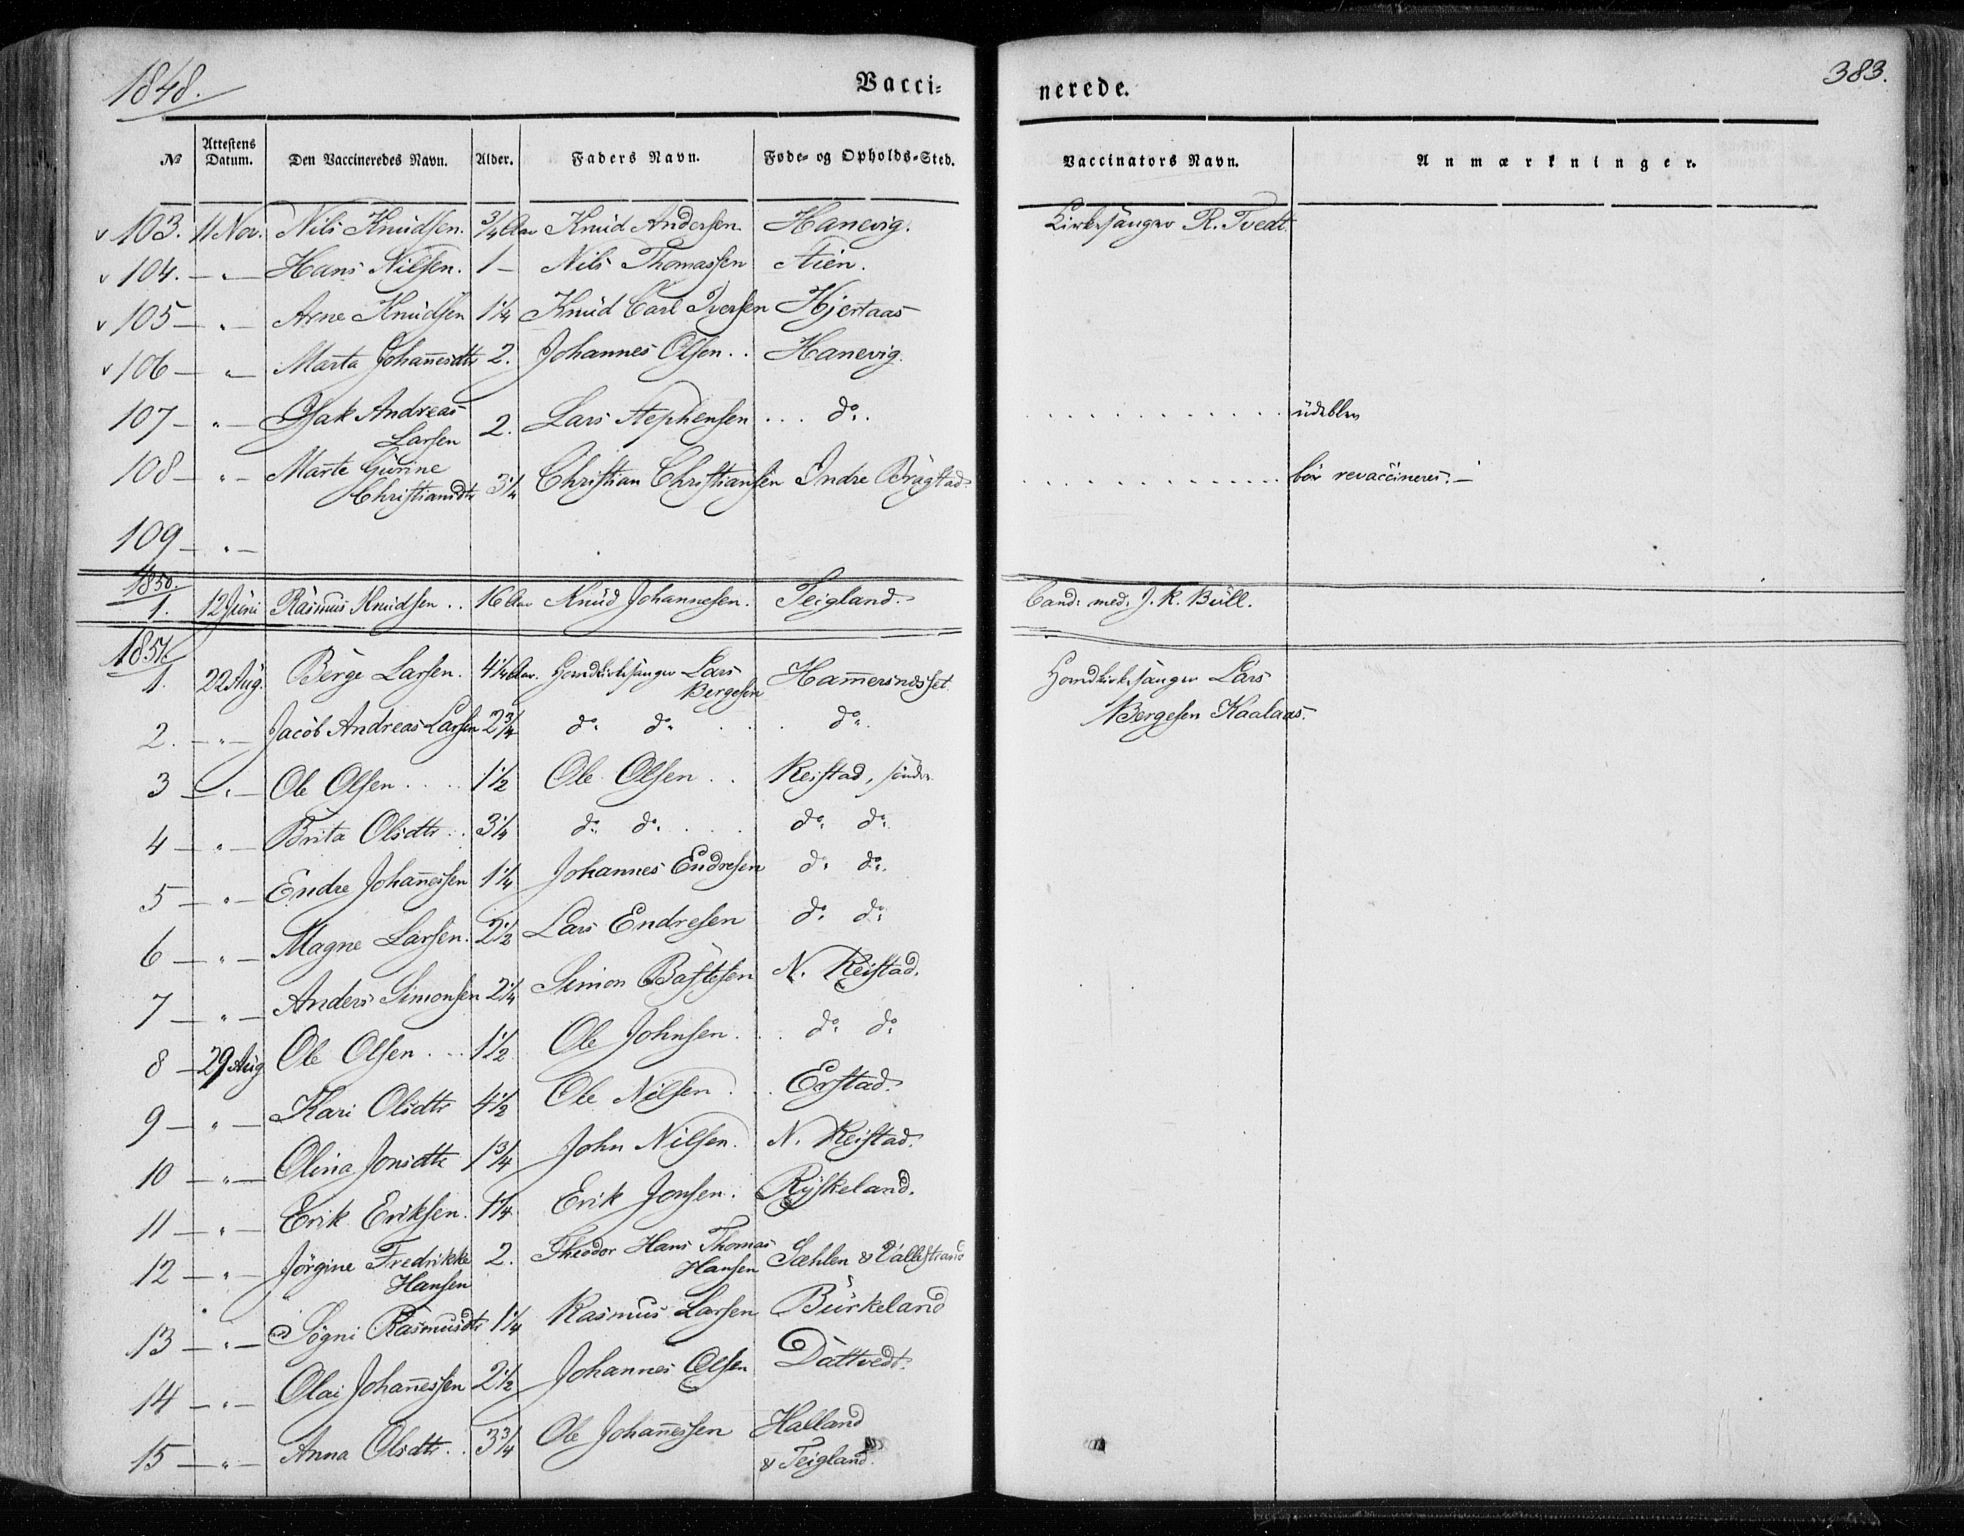 1848.
Vacci=
nerede.
383.
№ Attestens Datum. Den Vaccineredes Navn. Alder. Faders Navn. Føde- og Opholds-Sted. Vaccinators Navn. Anmærkninger.
v 103. 11 Nov. Nils Knudsen. 3/4 Aar Knud Andersen. Hanevig. Kirkesanger R. Tvedt.
v 104. — „ — Hans Nilsen. 1 — Nils Thomassen
v 105 — „ — Arne Knudsen 1 1/4 Knud Carl Iversen Hjertaas
v 106 — „ — Marta Johannesdtr 2. Johannes Olsen . . Hanevig.
107 — „ — Isak Andreas
Larsen 2. Lars Stephensen . . . do. . . . . . . . . . . . . . udeblev
108 — „ — Marte Gurine
Christiansdtr 3 1/4 Christian Christiansen Indre Brugstad. . . . . . . . . . . . . bör revaccineres. —
109 — „ —
1850.
1. 12 Juni Rasmus Knudsen . . 16 Aar Knud Johannesen. Teigland. Cand. med. J. K. Bull.
1851.
1. 22 Aug. Börge Larsen. 4 1/4 Aar. Lars
Bergesen Hamersnesset. Lars
Bergesen Kaalaas.
2. — „ — Jacob Andreas Larsen 2 3/4 do. do. . . . do.
3 — „ — Ole Olsen . . . . 1 1/2 Ole Olsen . . Reistad, söndr.
4 — „ — Brita Olsdtr. . 3 1/4 do. do. . . . do. do.
5 — „ — Endre Johannessen 1 1/4 Johannes Endresen do. do.
6 — „ — Magne Larsen. 2 1/2 Lars Endresen do. do.
7 — „ — Anders Simonsen 2 1/4 Simon Baftesen N. Reistad.
8 — 29 Aug Ole Olsen . . . 1 1/2 Ole Johnsen. . . do. do.
9 — „ — Kari Olsdtr 4 1/2 Ole Nilsen . . Erstad.
10 — „ — Olina Jonsdtr 1 3/4 John Nilsen. N. Reistad.
11 — „ — Erik Eriksen. 1 1/4 Erik Jonsen. Ryskeland.
12 — „ — Jörgine Fredrikke
Hansen 2. Theodor Hans Thomas
Hansen Sæhlen & Vallestrand
13 — „ — Sögni Rasmusdtr 1 1/4 Rasmus Larsen Burkeland
14 — „ — Olai Johannessen 2 1/2 Johannes Olsen Dattvedt.
15 — „ — Anna Olsdtr. . 3 3/4 Ole Johannessen Halland
& Teigland.